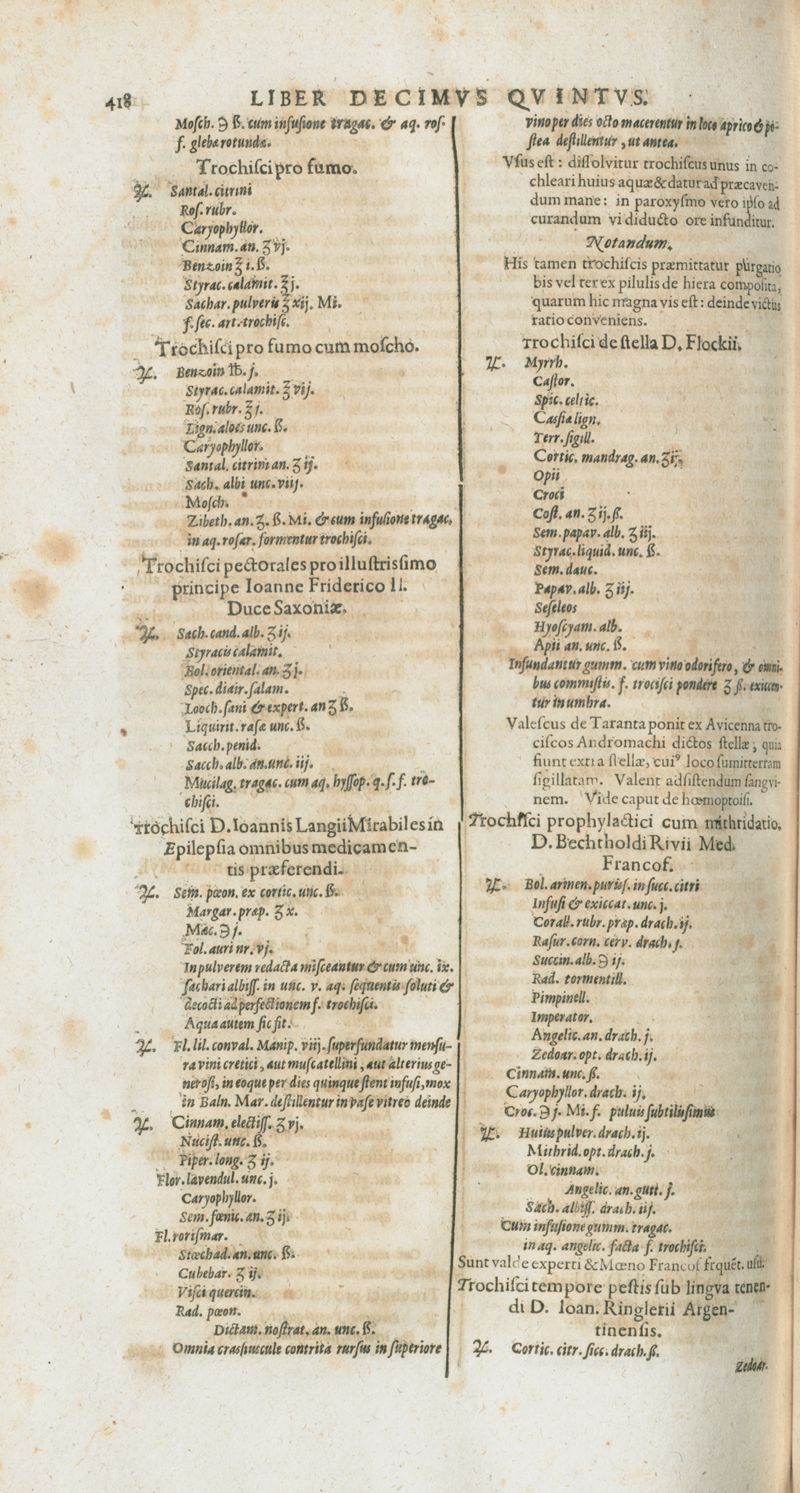 418 LIBER DECIMVS QVINTVS.
Moſch. ℈ ß. cum infuſione tragac. & aq. roſ.
f. gleba rotunda.
Trochiſci pro fumo.
♃. Santal. citrini
Roſ. rubr.
Caryophyllor.
Cinnam. an. ʒ vj.
Benzoin ℥ i. ß.
Styrac. calamit. ℥ j.
Sachar. pulveris ℥ xij. Mi.
f. ſec. art. trochiſc.
Trochiſci pro fumo cum moſcho.
♃. Benzoin ℔. j.
Styrac. calamit. ℥ vij.
Roſ. rubr. ℥ j.
Lign. aloes unc. ß.
Caryophyllor.
Santal. citrini an. ʒ ij.
Sach. albi unc. viij.
Moſch.
Zibeth. an. ʒ. ß. Mi. & cum infuſione tragac.
in aq. roſar. formentur trochiſci.
Trochiſci pectorales pro illuſtrisſimo
principe Ioanne Friderico II.
Duce Saxoniæ.
♃. Sach. cand. alb. ʒ ij.
Styracis calamit.
Bol. oriental. an. ʒ j.
Spec. diair. ſalam.
Looch. ſani & expert. an ʒ ß.
Liquirit. raſæ unc. ß.
Sacch. penid.
Sacch. alb. an. unc. iij.
Mucilag. tragac. cum aq. hyſſop. q. ſ. f. tro-
chiſci.
Trochiſci D. Ioannis Langii Mirabiles in
Epilepſia omnibus medicamen-
tis præferendi.
♃. Sem. pæon. ex cortic. unc. ß.
Margar. præp. ʒ x.
Mac. ℈ j.
Fol. auri nr. vj.
In pulverem redacta miſceantur & cum unc. ix.
ſachari albiſſ. in unc. v. aq. ſequentis ſoluti &
decocti ad perfectionem f. trochiſci.
Aqua autem ſic fit.
♃. Fl. lil. conval. Manip. viij. ſuperfundatur menſu-
ra vini cretici, aut muſcatellini, aut alterius ge-
neroſi, in eoque per dies quinque ſtent infuſi, mox
in Baln. Mar. deſtillentur in vaſe vitreo deinde
♃. Cinnam. electiſſ. ʒ vj.
Nuciſt. unc. ß.
Piper. long. ʒ ij.
Flor. lavendul. unc. j.
Caryophyllor.
Sem. fœnic. an. ʒ ij.
Fl. roriſmar.
Stœchad. an. unc. ß.
Cubebar. ʒ ij.
Viſci quercin.
Rad. pæon.
Dictam. noſtrat. an. unc. ß.
Omnia crasſiuscule contrita rurſus in ſuperiore
vino per dies octo macerentur in loco aprico & po-
ſtea deſtillentur, ut antea.
Vſus eſt: diſſolvitur trochiſcus unus in co-
chleari huius aquæ & datur ad præcaven-
dum mane: in paroxyſmo vero ipſo ad
curandum vi diducto ore infunditur.
Notandum.
His tamen trochiſcis præmittatur purgatio
bis vel ter ex pilulis de hiera compoſita,
quarum hic magna vis eſt: deinde victus
ratio conveniens.
Trochiſci de ſtella D. Flockii.
♃. Myrrh.
Caſtor.
Spic. celtic.
Casſia lign.
Terr. ſigill.
Cortic. mandrag. an. ʒ ij.
Opii
Croci
Coſt. an. ʒ ij. ß.
Sem. papav. alb. ʒ iij.
Styrac. liquid. unc. ß.
Sem. dauc.
Papav. alb. ʒ iij.
Seſeleos
Hyoſcyam. alb.
Apii an. unc. ß.
Infundantur gumm. cum vino odorifero, & omni-
bus commiſtis. f. trociſci pondere ʒ ß. exiccen-
tur in umbra.
Valeſcus de Taranta ponit ex Avicenna tro-
ciſcos Andromachi dictos ſtellæ, quia
fiunt ex tra ſtellæ, cuiꝰ loco ſumit terram
ſigillatam. Valent ad ſiſtendum ſangvi-
nem. Vide caput de hœmoptoiſi.
Trochiſci prophylactici cum mithridatio.
D. Bechtholdi Rivii Med.
Francof.
♃. Bol. armen. puriſſ. in ſucc. citri
Infuſi & exiccat. unc. j.
Corall. rubr. præp. drach. ij.
Raſur. corn. cerv. drach. j.
Succin. alb. ℈ ij.
Rad. tormentill.
Pimpinell.
Imperator.
Angelic. an. drach. j.
Zedoar. opt. drach. ij.
Cinnam. unc. ß.
Caryophyllor. drach. ij.
Croc. ℈ j. Mi. f. pulvis ſubtilisſimus
♃. Huius pulver. drach. ij.
Mithrid. opt. drach. j.
Ol. cinnam.
Angelic. an. gutt. j.
Sach. albiſſ. drach. iij.
Cum infuſione gumm. tragac.
in aq. angelic. facta f. trochiſci.
Sunt valde experti & Mœno Francof frequēt. uſu.
Trochiſci tempore peſtis ſub lingva tenen-
di D. Ioan. Ringlerii Argen-
tinenſis.
♃. Cortic. citr. ſicc. drach. ß.
Zedoar.